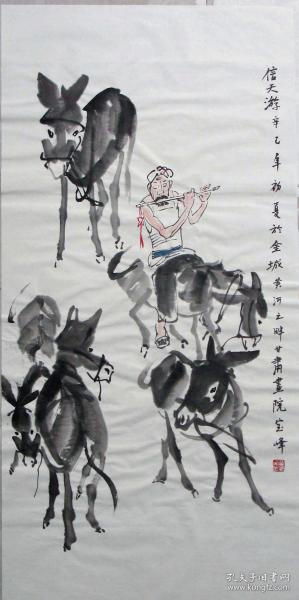 信天游辛巳年初夏於金城黄河之畔甘肃畫院宝峰
孔夫子旧书网